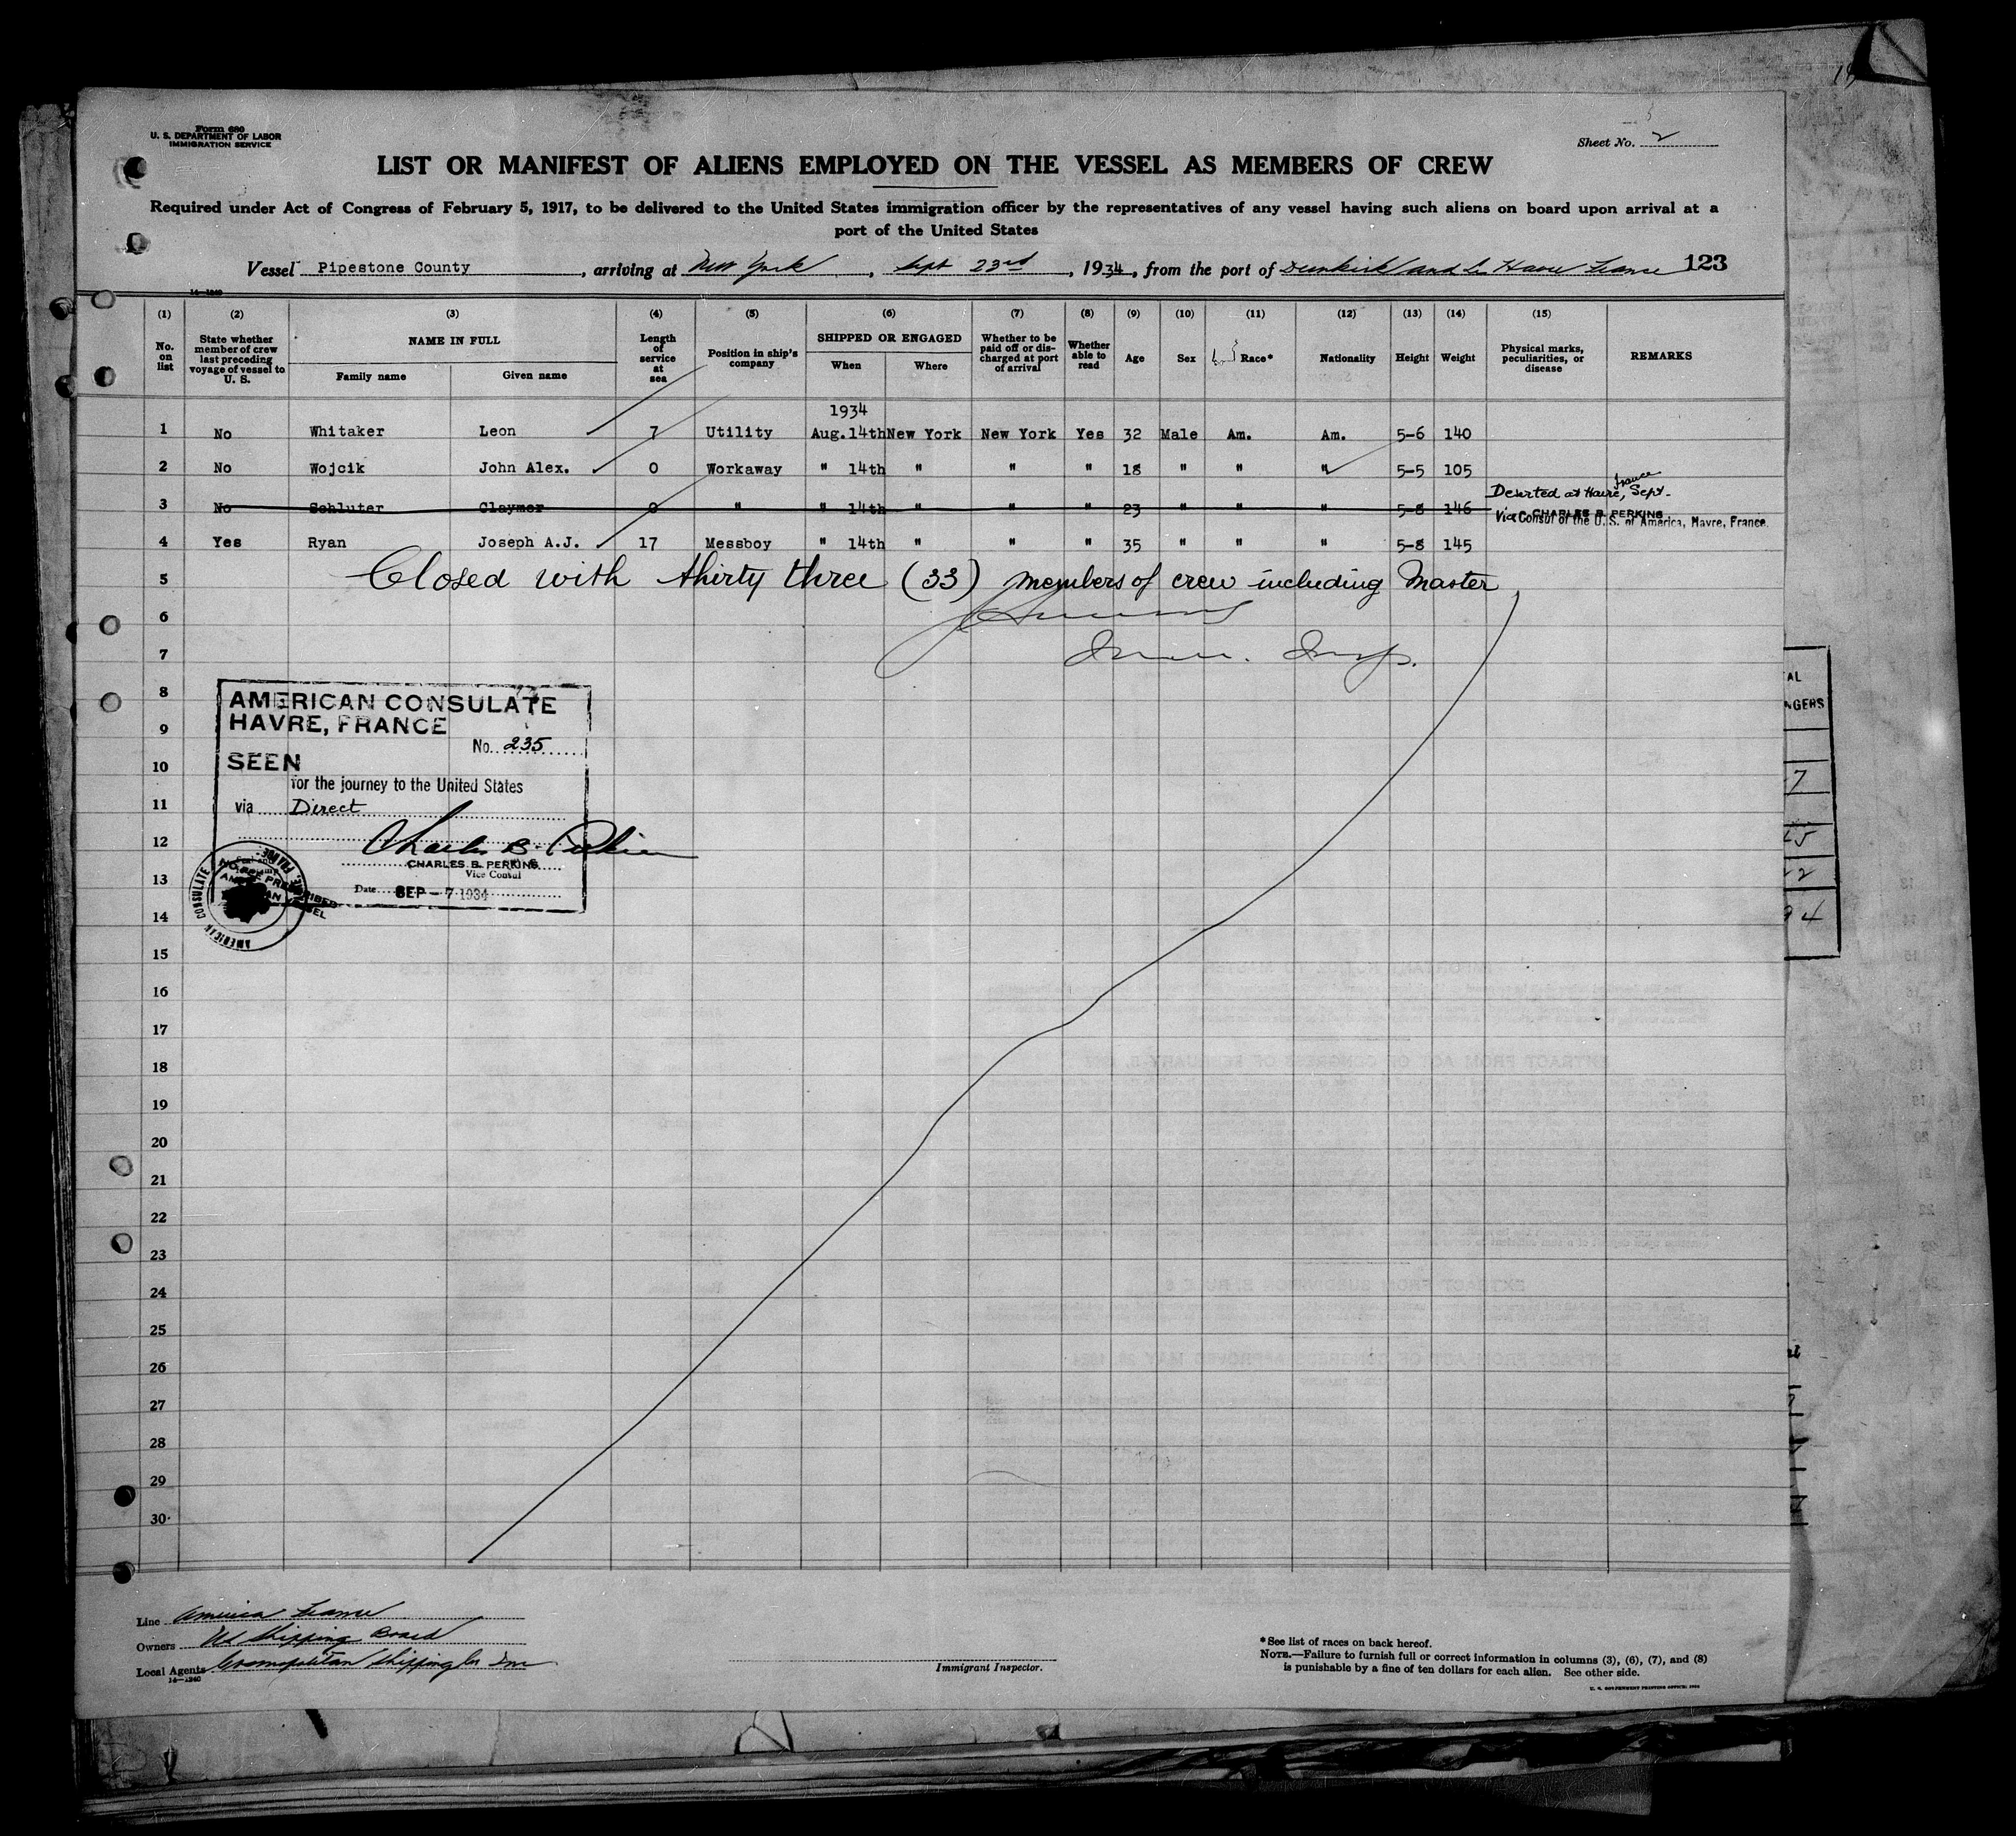 Form 680
U. S. DEPARTMENT OF LABOR
IMMIGRATION SERVICE
Sheet No. 2
LIST OR MANIFEST OF ALIENS EMPLOYED ON THE VESSEL AS MEMBERS OF CREW
Required under Act of Congress of February 5, 1917, to be delivered to the United States immigration officer by the representatives of any vessel having such aliens on board upon arrival at a
port of the United States
Vessel Pipestone County, arriving at New York, Sept 23rd, 1934, from the port of Dunkirk and Le Havre France 123
14—1240
(1) (2) (3) (4) (5) (6) (7) (8) (9) (10) (11) (12) (13) (14) (15)
No. on list State whether member of crew last preceding voyage of vessel to U. S. NAME IN FULL Family name Given name Length of service at sea Position in ship's company SHIPPED OR ENGAGED When Where Whether to be paid off or discharged at port of arrival Whether able to read Age Sex Race* Nationality Height Weight Physical marks, peculiarities, or disease REMARKS
1934
1 No Whitaker Leon 7 Utility Aug. 14th New York New York Yes 32 Male Am. Am. 5-6 140
2 No Wojcik John Alex. 0 Workaway " 14th " " " 18 " " " 5-5 105
3 No Schluter Claymor 0 " " 14th " " " 23 " " " 5-8 146 Deserted at Havre, France Sept.
CHARLES B. PERKINS
Vice Consul of the U. S. of America, Havre, France.
4 Yes Ryan Joseph A.J. 17 Messboy " 14th " " " 35 " " " 5-8 145
5 Closed with thirty three (33) members of crew including Master
6
7 Imm. Insp.
8
9
10
11
12
13
14
15
16
17
18
19
20
21
22
23
24
25
26
27
28
29
30
AMERICAN CONSULATE
HAVRE, FRANCE
No. 235
SEEN
for the journey to the United States
via Direct
Charles B. Perkins
CHARLES B. PERKINS
Vice Consul
Date SEP - 7 1934
AMERICAN CONSULATE
AL
NGERS
7
94
Line America France
Owners US Shipping Board
Local Agents Cosmopolitan Shipping Co Inc
14—1240
Immigrant Inspector.
*See list of races on back hereof.
NOTE.—Failure to furnish full or correct information in columns (3), (6), (7), and (8)
is punishable by a fine of ten dollars for each alien. See other side.